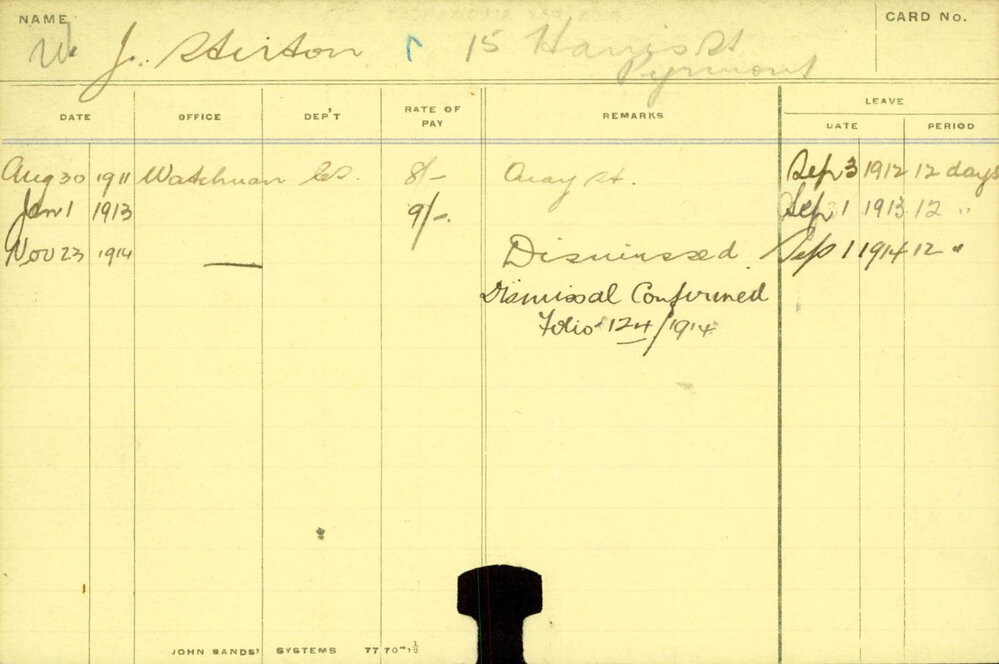 NAME
CARD No.
W. J. Stirton 15 Harris St
Pyrmont
DATE OFFICE DEP'T RATE OF PAY REMARKS LEAVE
DATE PERIOD
Aug 30 1911 Watchman 8/- Quay St. Sep 3 1912 12 days
Jan 1 1913 9/-. Sep 1 1913 12 "
Nov 23 1914 — Dismissed Sep 1 1914 12 "
Dismissal Confirmed
Folio 124/1914
JOHN SANDS' SYSTEMS 7770